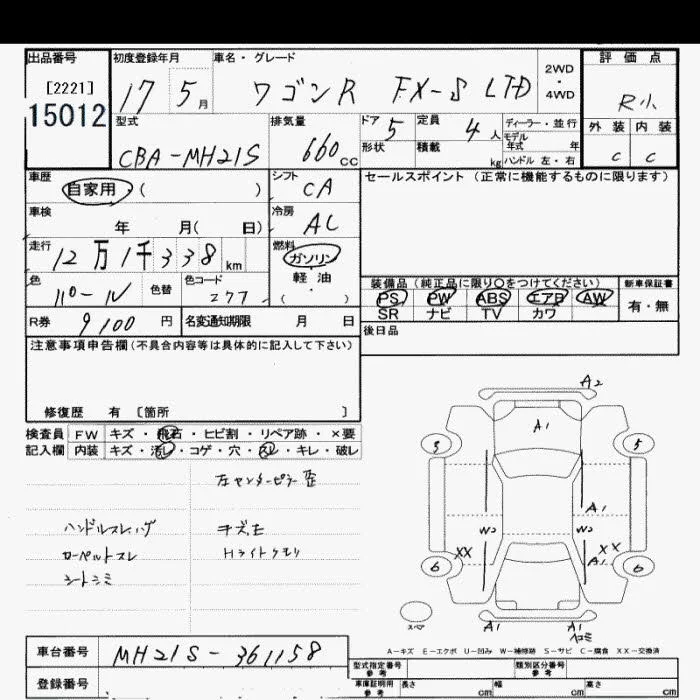 出品番号
[2221]
15012
初度登録年月
17 5月
車名・グレード
ワゴンR FX-S LTD
2WD
・
4WD
評価点
R小
外装 内装
C C
型式
CBA-MH21S
排気量
660cc
ドア 5
形状
定員 4人
積載 kg
ディーラー・並行
モデル年式 年
ハンドル 左・右
車歴
自家用・( )
シフト
CA
セールスポイント(正常に機能するものに限ります)
車検
年 月( 日)
冷房
AC
走行
12万1千338km
燃料
ガソリン
軽・油
・( )
色
パール
色替
色コード
Z77
装備品(純正品に限り○をつけてください)
PS PW ABS エアB AW
SR ナビ TV カワ
新車保証書
有・無
R券 9100円
名変通知期限 月 日
後日品
注意事項申告欄(不具合内容等は具体的に記入して下さい)
修復歴 有 [箇所 ]
検査員記入欄
FW キズ・飛石・ヒビ割・リペア跡・×要
内装 キズ・汚レ・コゲ・穴・スレ・キレ・破レ
左センターピラー歪
ハンドルスレ
キズ
カーペットスレ
Hライトクモリ
シートシミ
A2
A1
3
5
A1
W2
W2
XX
XX
A1
6
6
スペア
A1
A1
ヘコミ
A-キズ E-エクボ U-凹み W-補修跡 S-サビ C-腐食 XX-交換済
車台番号
MH21S-361158
登録番号
型式指定番号
参考
類別区分番号
参考
車庫証明用
参考
長さ cm
幅 cm
高さ cm